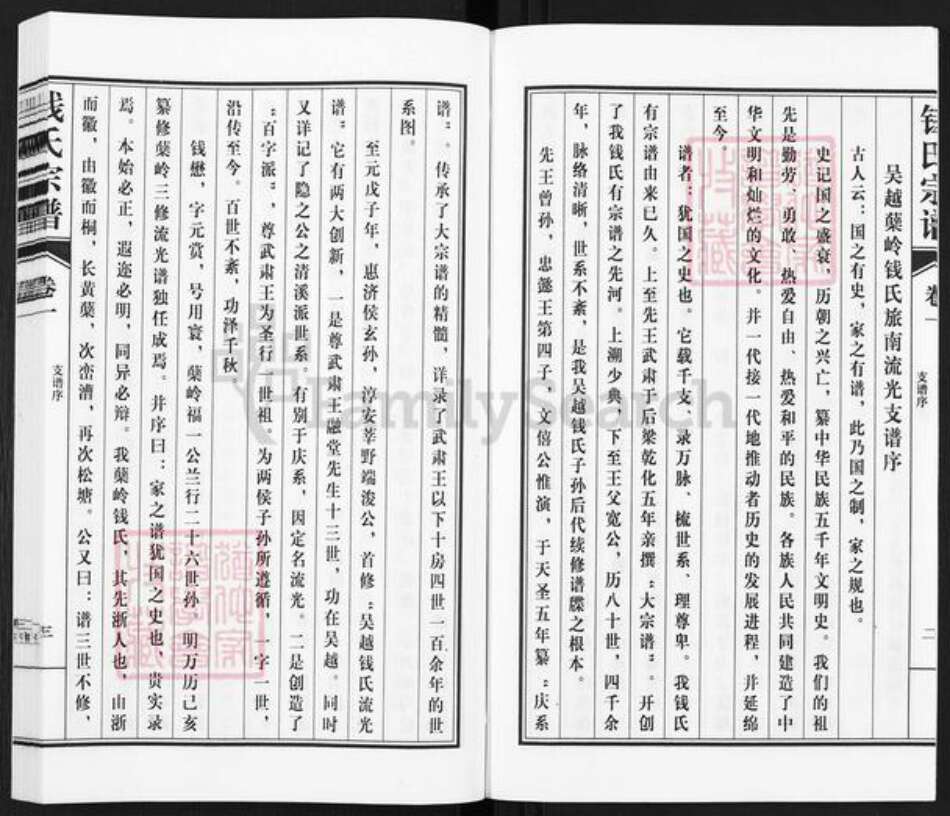 吴越蘖岭钱氏旅南流光支谱序
古人云：国之有史，家之有谱，此乃国之制，家之规也。
史记国之盛衰，历朝之兴亡，纂中华民族五千年文明史。我们的祖
先是勤劳、勇敢、热爱自由、热爱和平的民族。各族人民共同建造了中
华文明和灿烂的文化。并一代接一代地推动者历史的发展进程，并延绵
至今。
谱者：犹国之史也。它载千支、录万脉、梳世系、理尊卑。我钱氏
有宗谱由来已久。上至先王武肃于后梁乾化五年亲撰“大宗谱”。开创
了我钱氏有宗谱之先河。上溯少典，下至王父宽公，历八十世，四千余
年，脉络清晰，世系不紊，是我吴越钱氏子孙后代续修谱牒之根本。
先王曾孙，忠懿王第四子，文僖公惟演，于天圣五年纂“庆系
支谱序
二
谱”。传承了大宗谱的精髓，详录了武肃王以下十房四世一百余年的世
系图。
至元戊子年，惠济侯玄孙，淳安莘野端浚公，首修“吴越钱氏流光
谱”。它有两大创新，一是尊武肃王融堂先生十三世，功在吴越。同时
又详记了隐之公之清溪派世系。有别于庆系，因定名流光。二是创造了
“百字派”，尊武肃王为圣行一世祖。为两侯子孙所遵循，一字一世，
沿传至今。百世不紊，功泽千秋
钱懋，字元赏，号用寰，蘖岭福一公兰行二十六世孙。明万历己亥
纂修蘖岭三修流光谱独任成焉。并序曰：家之谱犹国之史也，贵实录
焉。本始必正，遐迩必明，同异必辩。我蘖岭钱氏，其先浙人也，由浙
而徽，由徽而桐，长黄蘖，次峦漕，再次松塘。公又曰：谱三世不修，
钱氏宗谱
卷一
支谱序
三
FamilySearch